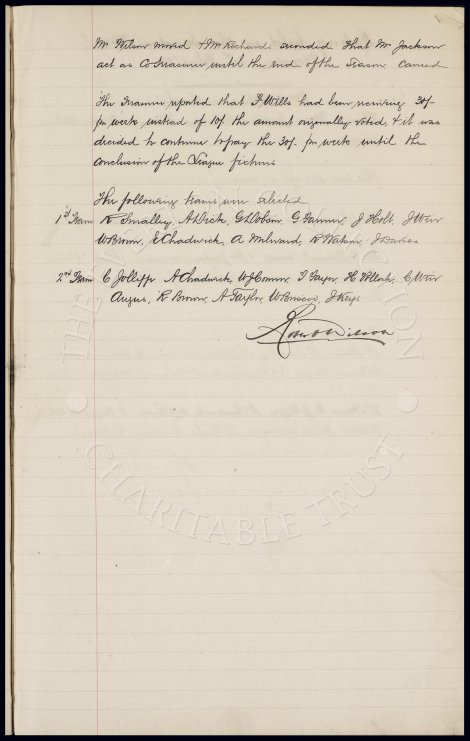 Mr Wilson moved & Mr Richards seconded that Mr Jackson
act as Co Treasurer until the end of the Season Carried
The Treasurer reported that F Wills had been receiving 30/-
per week instead of 10/- the amount originally voted, & it was
decided to continue to pay the 30/- per week until the
conclusion of the League fixtures
The following teams were selected
1st Team R Smalley, A Dick, G Dobson, G Farmer, J Holt, J Weir
W Brown, E Chadwick, A Milward, R Watson, J Davies
2nd Team C Jolliffe A Chadwick, W J Connor, H Pollock, C Weir
Angus, R Brown, A Taylor, W Briscoe, J Keys
Robert Wilson
THE COLLECTION
CHARITABLE TRUST